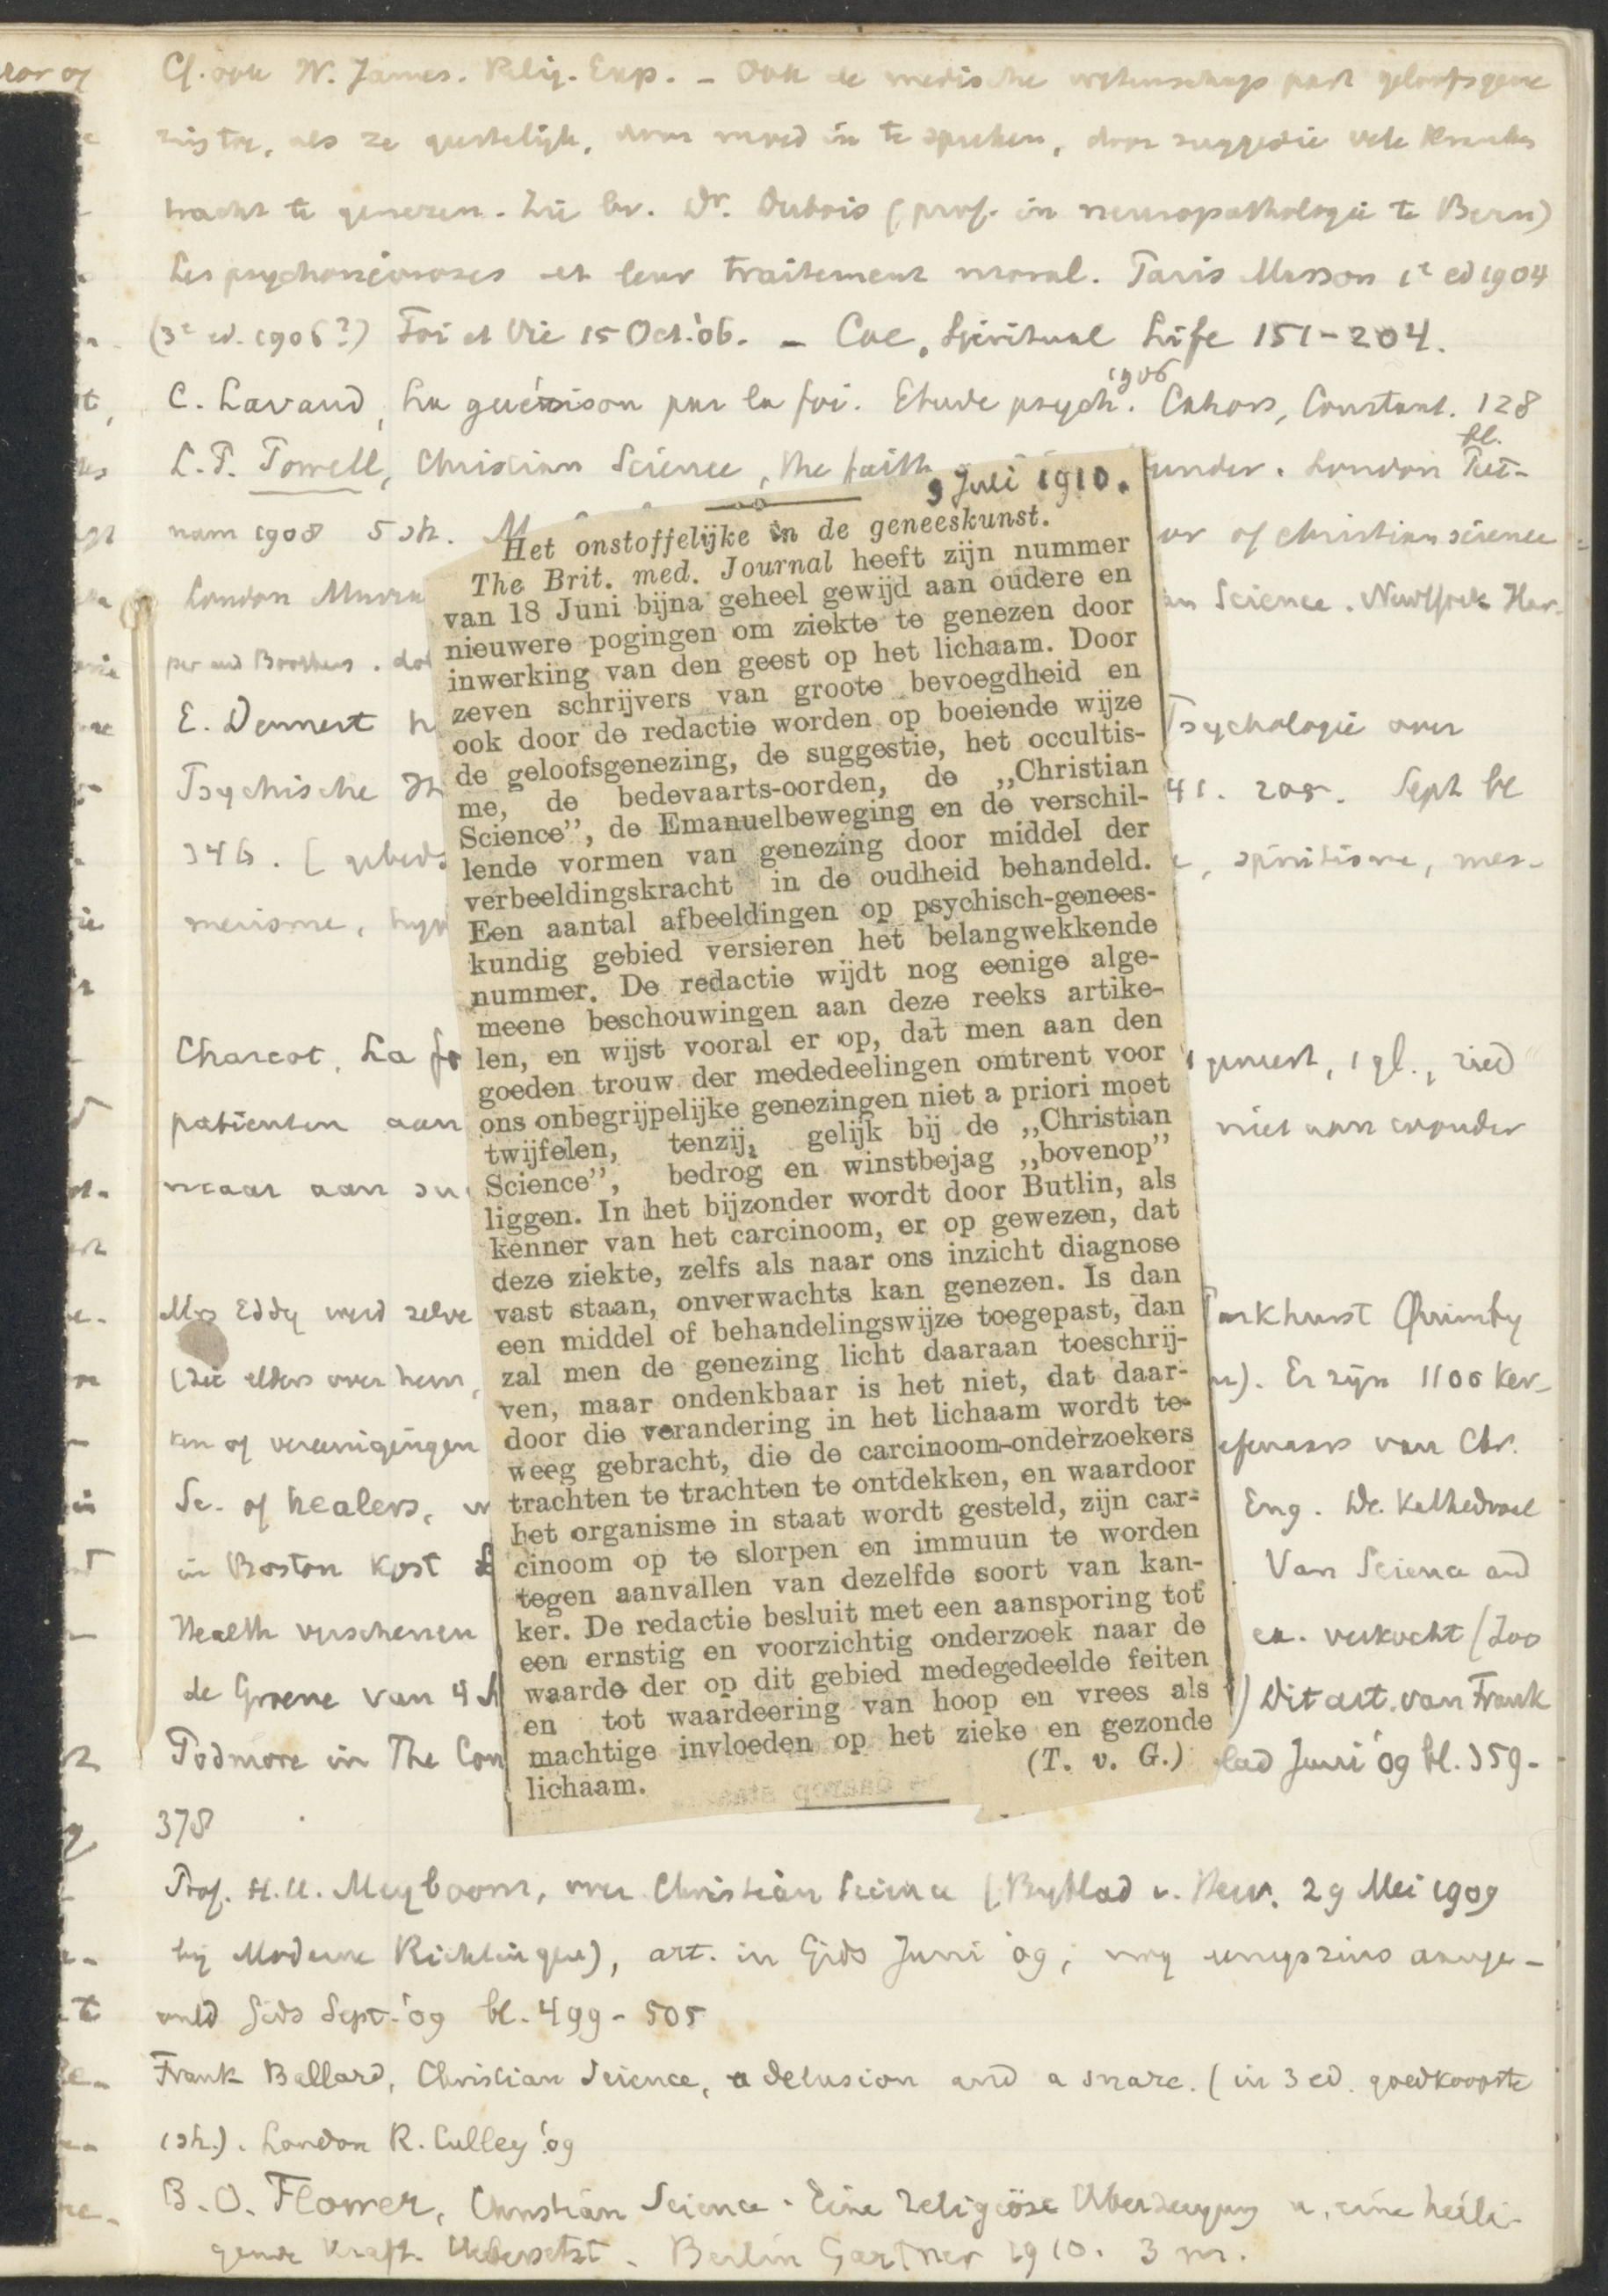 Cf. ook W. James. Relig. Exp. – Ook de medische wetenschap past geloofsgene
zing toe, als ze geestelijk, door moed in te spreken, door suggestie vele kranken
tracht te genezen. Zie bv. Dr. Dubois (prof. in neuropathologie te Bern)
Les psychonévroses et leur traitement moral. Paris Masson 1e ed 1904
(3e ed. 1906?) Foi et Vie 15 Oct. '06. – Coe, Spiritual Life 151-204.
C. Lavaud, La guérison par la foi. Etude psych. 1906 Cahors, Coustant. 128 bl.
L.P. Powell, Christian Science, the faith under. London Put-
nam 1908 5 sh. of christian science
London Murra Science. New York Har-
per and Brothers.
E. Dennert Psychologie over
Psychische 41. 205. Sept bl
346. [ spiritisme, mes-
merisme,
Charcot, La genest, 1 gl.,
patienten aan niet aan wonder
maar aan
Mrs Eddy werd zelve Parkhurst Quimby
(zie elders over hem, Er zijn 1100 ker-
ken of vereenigingen van Chr.
Sc. of healers, Eng. De Kathedraal
in Boston kost Van Science and
Health verschenen ex. verkocht (Zoo
de Groene van 4 Dit art. van Frank
Podmore in The Con Juni '09 bl. 359-
378
Prof. H.U. Meyboom, over Christian Science (Bijblad v. Herv. 29 Mei 1909
bij Moderne Richting), art. in Gids Juni '09; nog eenigszins aange-
vuld Gids Sept. '09 bl. 499-505
Frank Ballard, Christian Science, a delusion and a snare. (in 3 ed. goedkoopste
1 sh.). London R. Culley '09
B.O. Flower, Christian Science. Eine religiöse Überzeugung u. eine heili-
gende Kraft. Uebersetzt. Berlin Gartner 1910. 3 m.
9 Juli 1910.
Het onstoffelijke in de geneeskunst.
The Brit. med. Journal heeft zijn nummer
van 18 Juni bijna geheel gewijd aan oudere en
nieuwere pogingen om ziekte te genezen door
inwerking van den geest op het lichaam. Door
zeven schrijvers van groote bevoegdheid en
ook door de redactie worden op boeiende wijze
de geloofsgenezing, de suggestie, het occultis-
me, de bedevaarts-oorden, de „Christian
Science”, de Emanuelbeweging en de verschil-
lende vormen van genezing door middel der
verbeeldingskracht in de oudheid behandeld.
Een aantal afbeeldingen op psychisch-genees-
kundig gebied versieren het belangwekkende
nummer. De redactie wijdt nog eenige alge-
meene beschouwingen aan deze reeks artike-
len, en wijst vooral er op, dat men aan den
goeden trouw der mededeelingen omtrent voor
ons onbegrijpelijke genezingen niet a priori moet
twijfelen, tenzij, gelijk bij de „Christian
Science”, bedrog en winstbejag „bovenop”
liggen. In het bijzonder wordt door Butlin, als
kenner van het carcinoom, er op gewezen, dat
deze ziekte, zelfs als naar ons inzicht diagnose
vast staan, onverwachts kan genezen. Is dan
een middel of behandelingswijze toegepast, dan
zal men de genezing licht daaraan toeschrij-
ven, maar ondenkbaar is het niet, dat daar-
door die verandering in het lichaam wordt te-
weeg gebracht, die de carcinoom-onderzoekers
trachten te trachten te ontdekken, en waardoor
het organisme in staat wordt gesteld, zijn car-
cinoom op te slorpen en immuun te worden
tegen aanvallen van dezelfde soort van kan-
ker. De redactie besluit met een aansporing tot
een ernstig en voorzichtig onderzoek naar de
waarde der op dit gebied medegedeelde feiten
en tot waardeering van hoop en vrees als
machtige invloeden op het zieke en gezonde
lichaam. (T. v. G.)